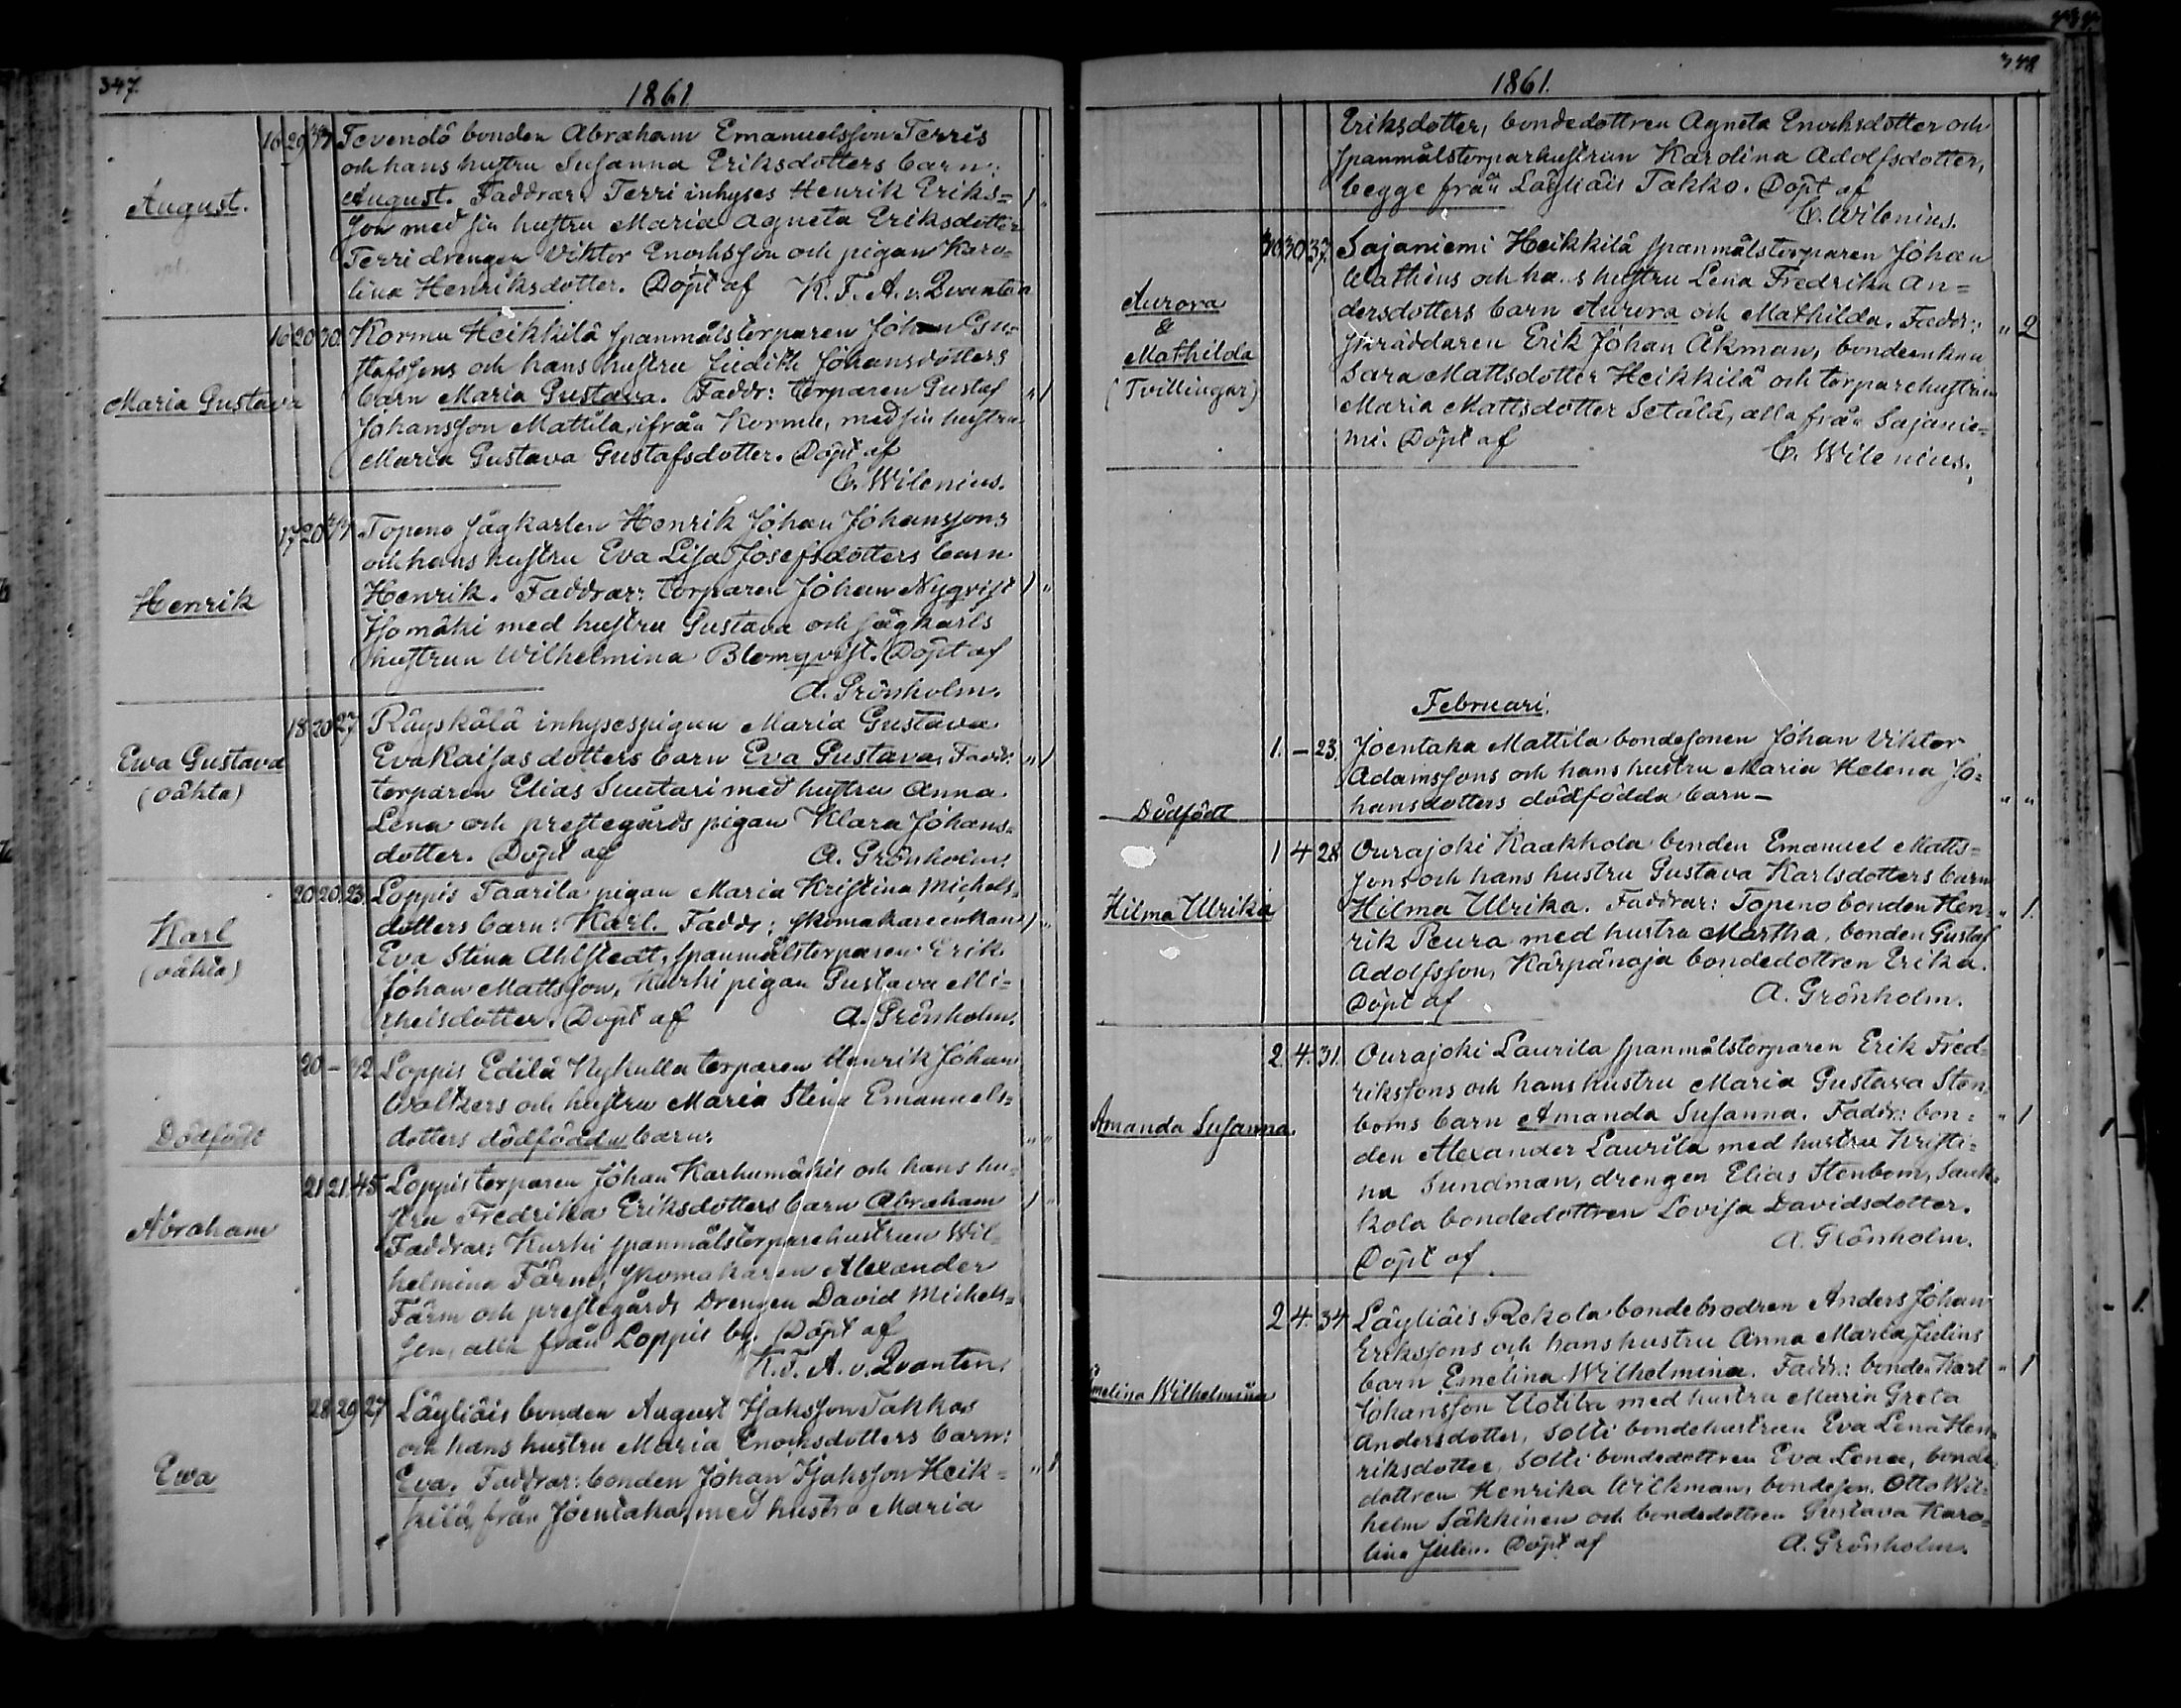 347.
1861.
August.
16 29 Tevendö bonden Abraham Emanuelsson Terris
och hans hustru Susanna Eriksdotters barn:
August. Faddrar: Terri inhyses Henrik Eriks=
son med sin hustru Maria Agneta Eriksdotter
Terri drengen Viktor Enochsson och pigan Karo=
lina Henriksdotter. Döpt af K. T. A. v. Qvanten
Maria Gustava
16 20 30. Kormu Heikkilä spanmålstorparen Johan Gu=
stafssons och hans hustru Judith Johansdotters
barn Maria Gustava. Faddr: torparen Gustaf " 1
Johansson Mattila, ifrån Kormu, med sin hustru
Maria Gustava Gustafsdotter. Döpt af
C. Wilenius.
Henrik
17 20 Topeno sågkarlen Henrik Johan Johanssons
och hans hustru Eva Lisa Josefsdotters barn
Henrik. Faddrar: torparen Johan Nyqvist 1 "
Isomäki med hustru Gustava och sågkarls
hustrun Wilhelmina Blomqvist. Döpt af
A. Grönholm.
Ewa Gustava
(oäkta)
18 20 27 Räyskälä inhysespigan Maria Gustava
Evakaisasdotters barn Eva Gustava, Faddr: " 1
torparen Elias Suutari med hustru Anna
Lena och prestegårds pigan Klara Johans=
dotter. Döpt af A. Grönholm.
Karl
(oäkta)
20 20 23. Loppis Taarila pigan Maria Kristina Michels=
dotters barn: Karl. Faddr: skomakareenkan 1 "
Eva Stina Ahlstedt, spanmålstorparen Erik
Johan Mattsson, Kurki pigan Gustava Mi=
chelsdotter. Döpt af A. Grönholm.
Dödfödt
20 – 42 Loppis Edilä Nykulla torparen Henrik Johan
Walkers och hustru Maria Stina Emanuels=
dotters dödfödda barn. " "
Abraham
21 21 45 Loppis torparen Johan Karhumäkis och hans hu=
stru Fredrika Eriksdotters barn Abraham 1 "
Faddrar: Kurki spanmålstorparehustrun Wil=
helmina Färm, skomakaren Alexander
Färm och prestegårds drengen David Michels=
son, alla från Loppis by. Döpt af
K. T. A. v. Qvanten.
Ewa
28 29 27 Läyliäis bonden August Isaksson Takkos
och hans hustru Maria Enochsdotters barn:
Eva. Faddrar: bonden Johan Isaksson Heik= " 1
kilä, från Joentaka, med hustru Maria
348
1861.
Eriksdotter, bondedottren Agneta Enochsdotter och
spanmålstorparhustrun Karolina Adolfsdotter,
begge från Läyliäis Takko. Döpt af
C. Wilenius.
Aurora
&
Mathilda
(Tvillingar)
30 30 37. Sajaniemi Heikkilä spanmålstorparen Johan
Mathius och hans hustru Lena Fredrika An=
dersdotters barn Aurora och Mathilda. Faddr: " 2
skräddaren Erik Johan Åkman, bondeenkan
Sara Mattsdotter Heikkilä och torparehustrun
Maria Mattsdotter Setälä, alla från Sajanie=
mi. Döpt af C. Wilenius.
Februari.
Dödfödt
1. – 23. Joentaka Mattila bondesonen Johan Viktor
Adamssons och hans hustru Maria Helena Jo=
hansdotters dödfödda barn – " "
Hilma Ulrika
1 4 28 Ourajoki Kaakkola bonden Emanuel Matts=
sons och hans hustru Gustava Karlsdotters barn
Hilma Ulrika. Faddrar: Topeno bonden Hen= " 1.
rik Peura med hustru Martha, bonden Gustaf
Adolfsson, Kärpänoja bondedottren Erika.
Döpt af A. Grönholm.
Amanda Susanna.
2. 4. 31. Ourajoki Laurila spanmålstorparen Erik Fred=
rikssons och hans hustru Maria Gustava Sten=
boms barn Amanda Susanna. Faddr: bon= " 1
den Alexander Laurila med hustru Kristi=
na Sundman, drengen Elias Stenbom,
kola bondedottren Lovisa Davidsdotter.
A. Grönholm.
Döpt af
Emelina Wilhelmina
2 4. 34 Läyliäis Rekola bondebrodren Anders Johan
Erikssons och hans hustru Anna Maria Julins
barn Emelina Wilhelmina. Faddr.: bonden Karl " 1
Johansson Uotila med hustru Maria Greta
Andersdotter, Solti bondehustrun Eva Lena Hen=
riksdotter, Solti bondedottren Eva Lena, bonde=
dottren Henrika Wilkman, bondeson. Otto Wil=
helm Säkkinen och bondedottren Gustava Karo=
lina Julin. Döpt af A. Grönholm.